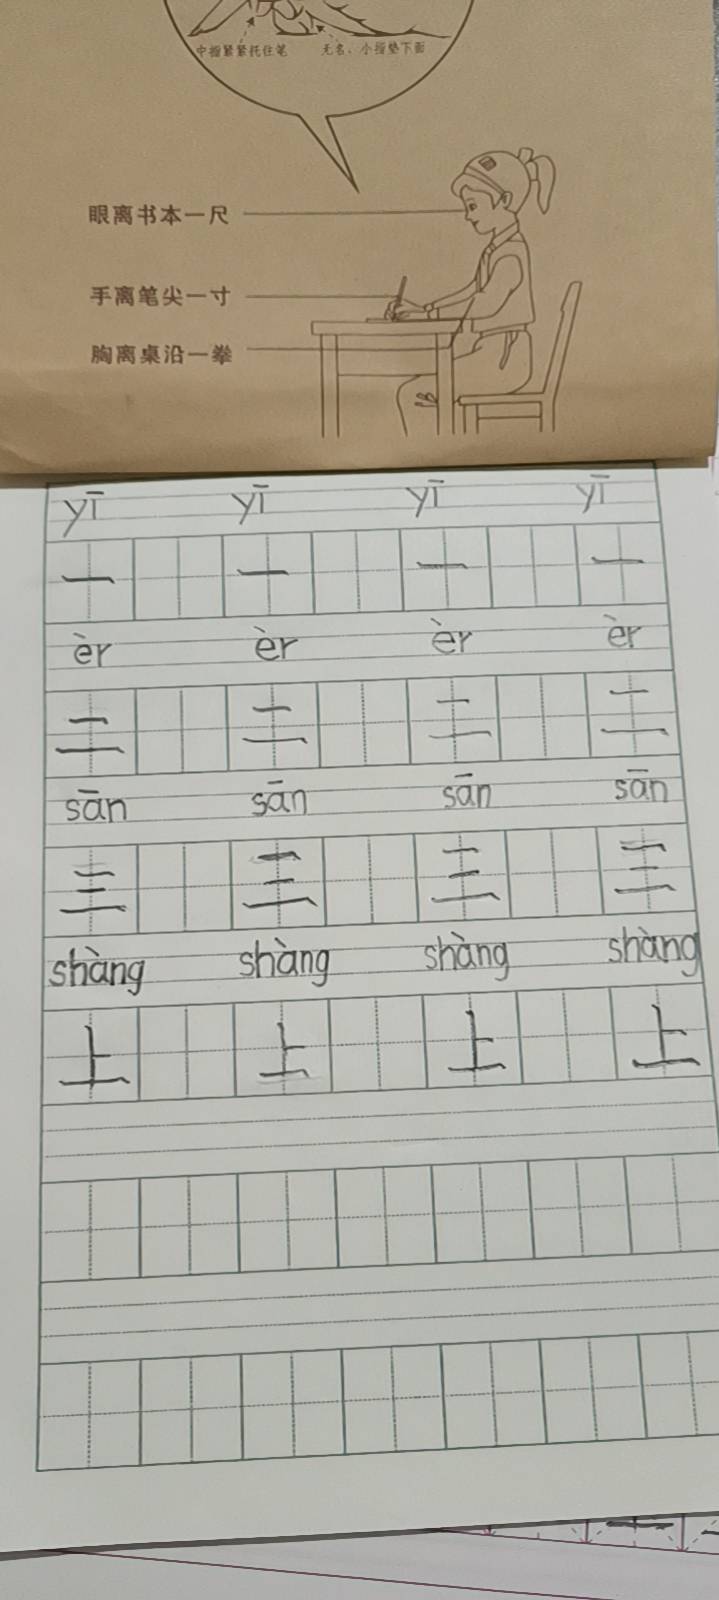 中指紧紧托住笔 无名、小指垫下面
眼离书本一尺
手离笔尖一寸
胸离桌沿一拳
yī yī yī yī
一 一 一 一
èr èr èr èr
二 二 二 二
sān sān sān sān
三 三 三 三
shàng shàng shàng shàng
上 上 上 上